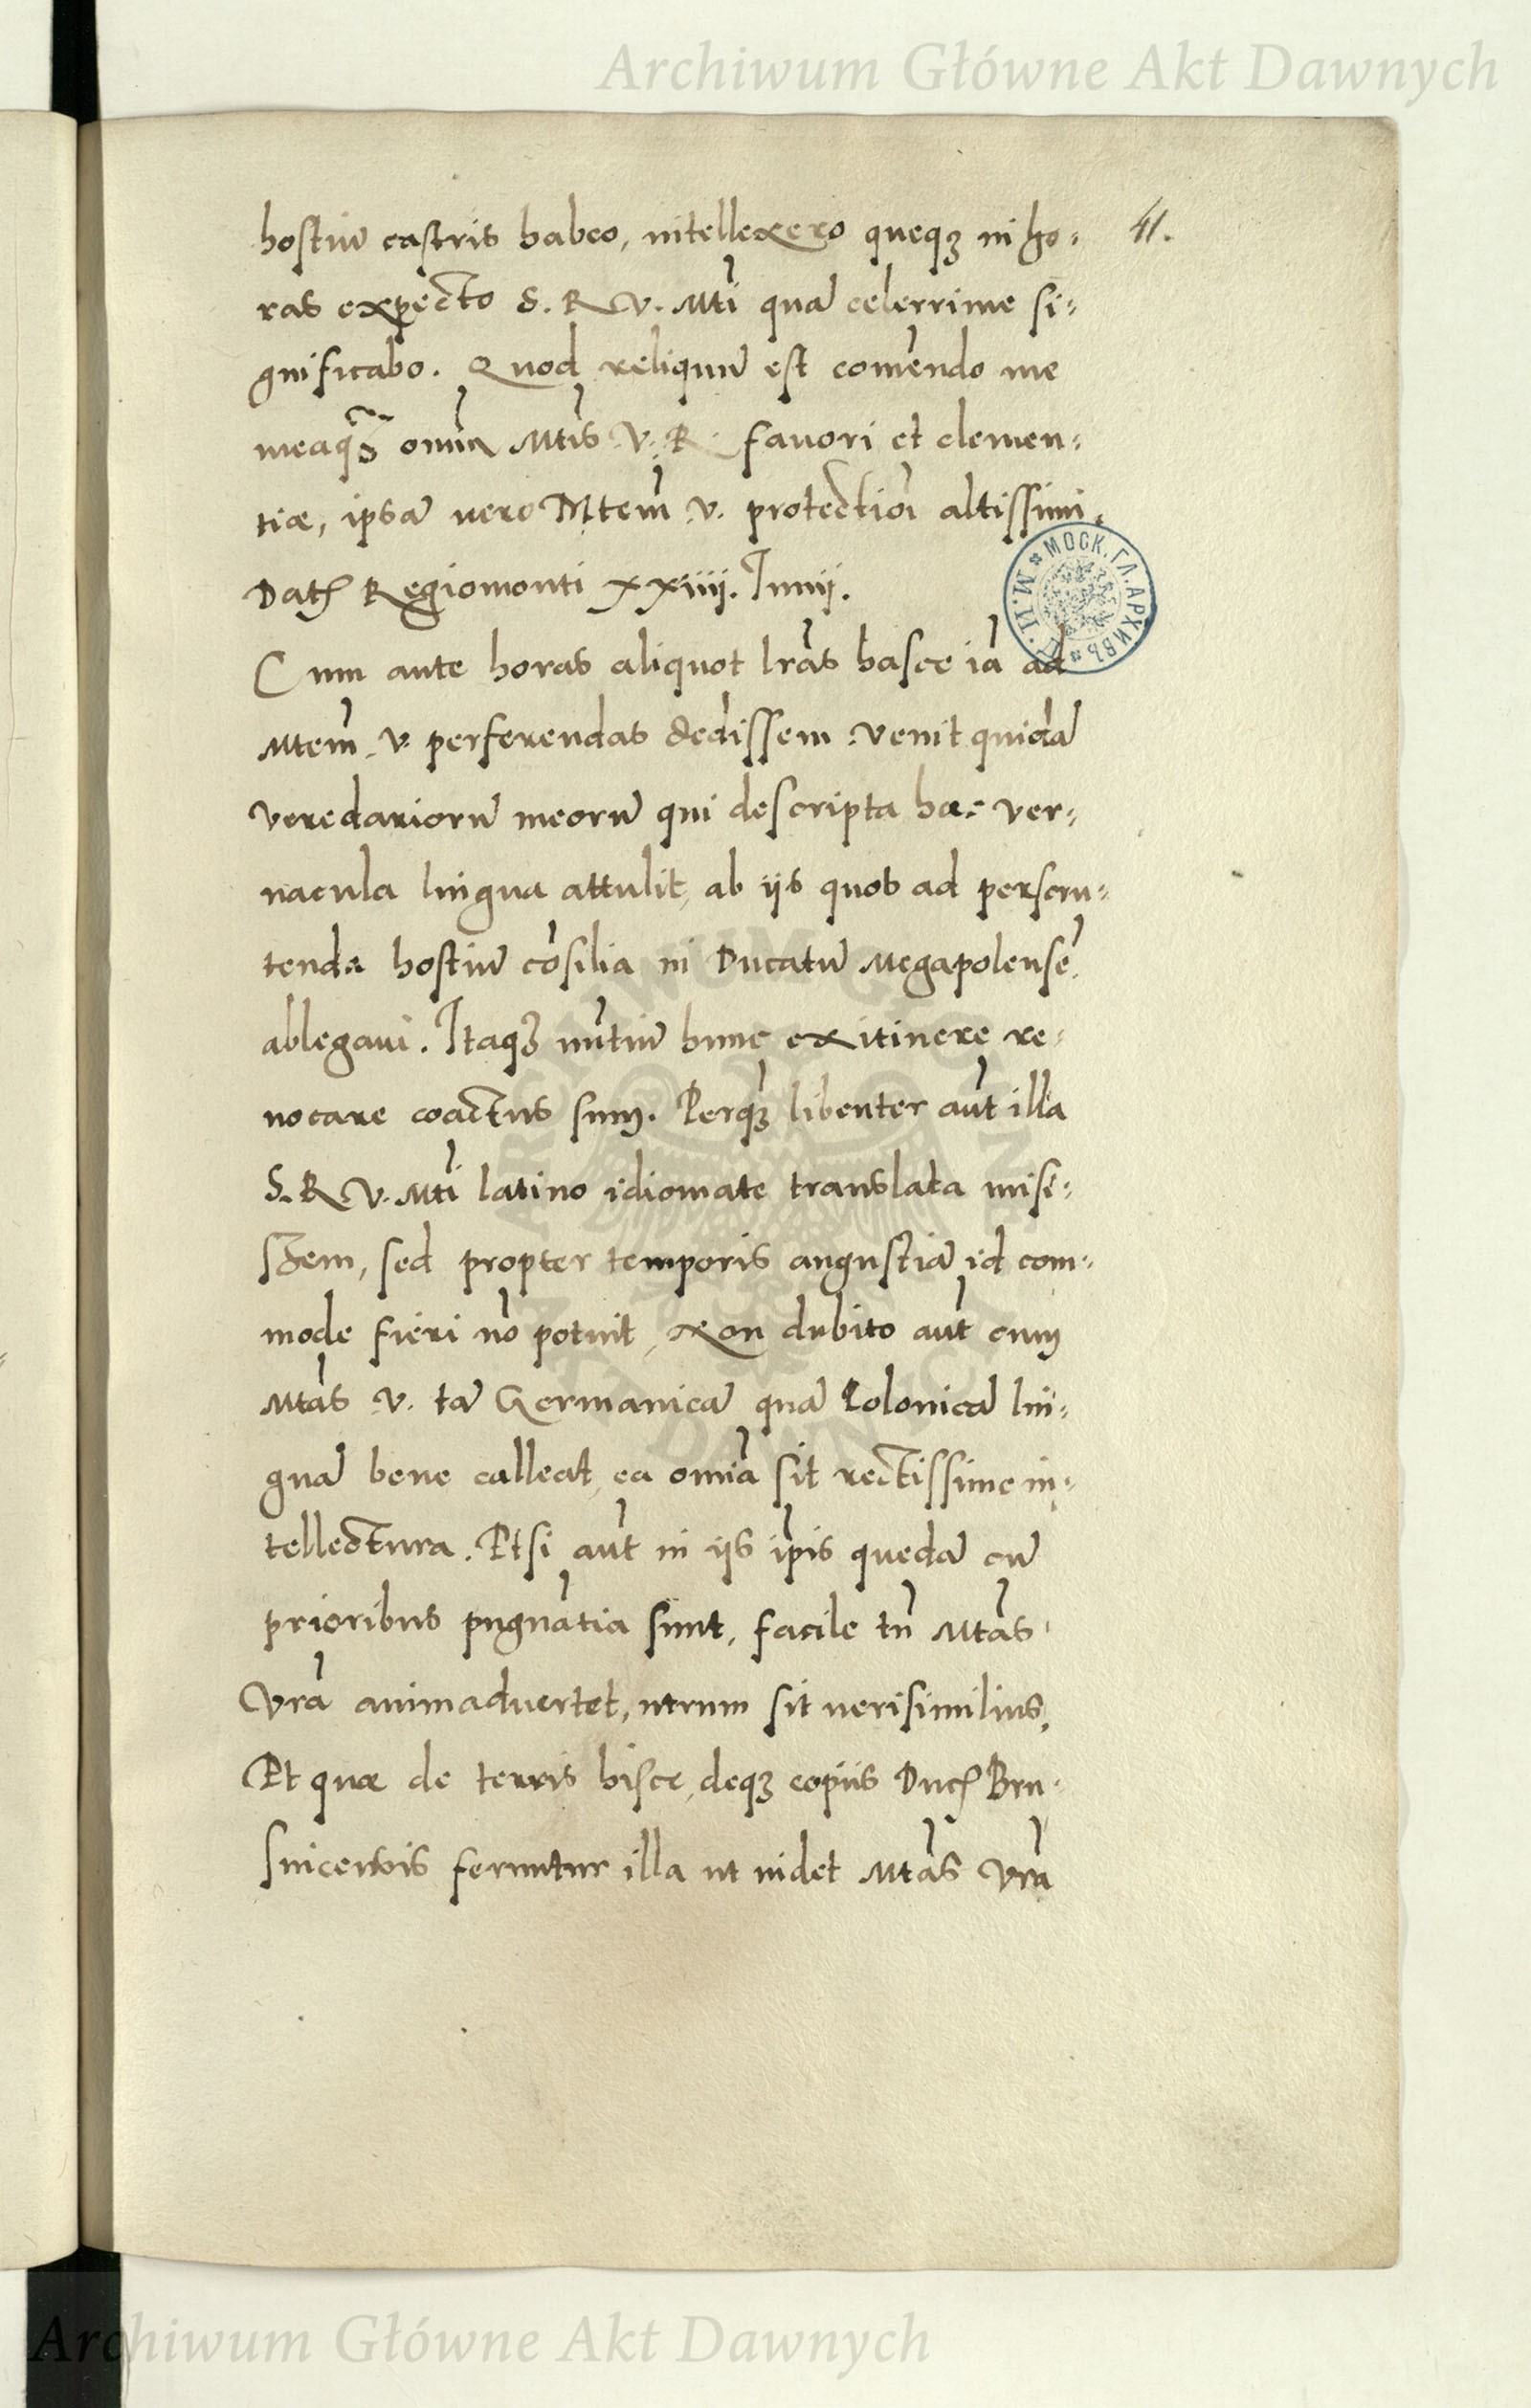 Archiwum Główne Akt Dawnych
41.
hostiū castris habeo, intellexero queqꝫ in ho-
ras expecto S. R. V. Mti quā celerrime si-
gnificabo. Quod reliquū est comēndo me
meaqꝫ omīa Mtis V. R. fauori et clemen-
tiæ, ipsā vero Mtem V. protectioī altissimi.
Datꝭ Regiomonti XXiiij. Iunij.
Cum ante horas aliquot lrās hasce iā ad
Mtem V. perferendas dedissem venit quidā
veredariorū meorū qui descripta hæc ver-
nacula lingua attulit, ab ijs quos ad perscru-
tenda hostiū cōsilia in Ducatū Megapolensē
ablegaui. Itaqꝫ nūtiū hunc ex itinere re-
uocare coactus sum. Perqꝫ libenter aūt illa
S. R. V. Mti latino idiomate translata misi-
ssem, sed propter temporis angustiā id com-
mode fieri nō potuit, Non dubito aūt cum
Mtas V. tā Germanicā quā Polonicā lin-
guā bene calleat, ea omīa sit rectissime in-
tellectura. Etsi aūt in ijs ip̄is quedā cū
prioribus pugnātia sunt, facile tn̄ Mtas
Vrā animaduertet, utrum sit uerisimilius,
Et quæ de terris hisce, deqꝫ copiis Ducꝭ Bru-
suicensis feruntur illa ut uidet Mtas Vrā
МОСК. ГЛ. АРХИВЪ
М. И. Д.
ARCHIWUM GŁÓWNE
AKT DAWNYCH
Archiwum Główne Akt Dawnych